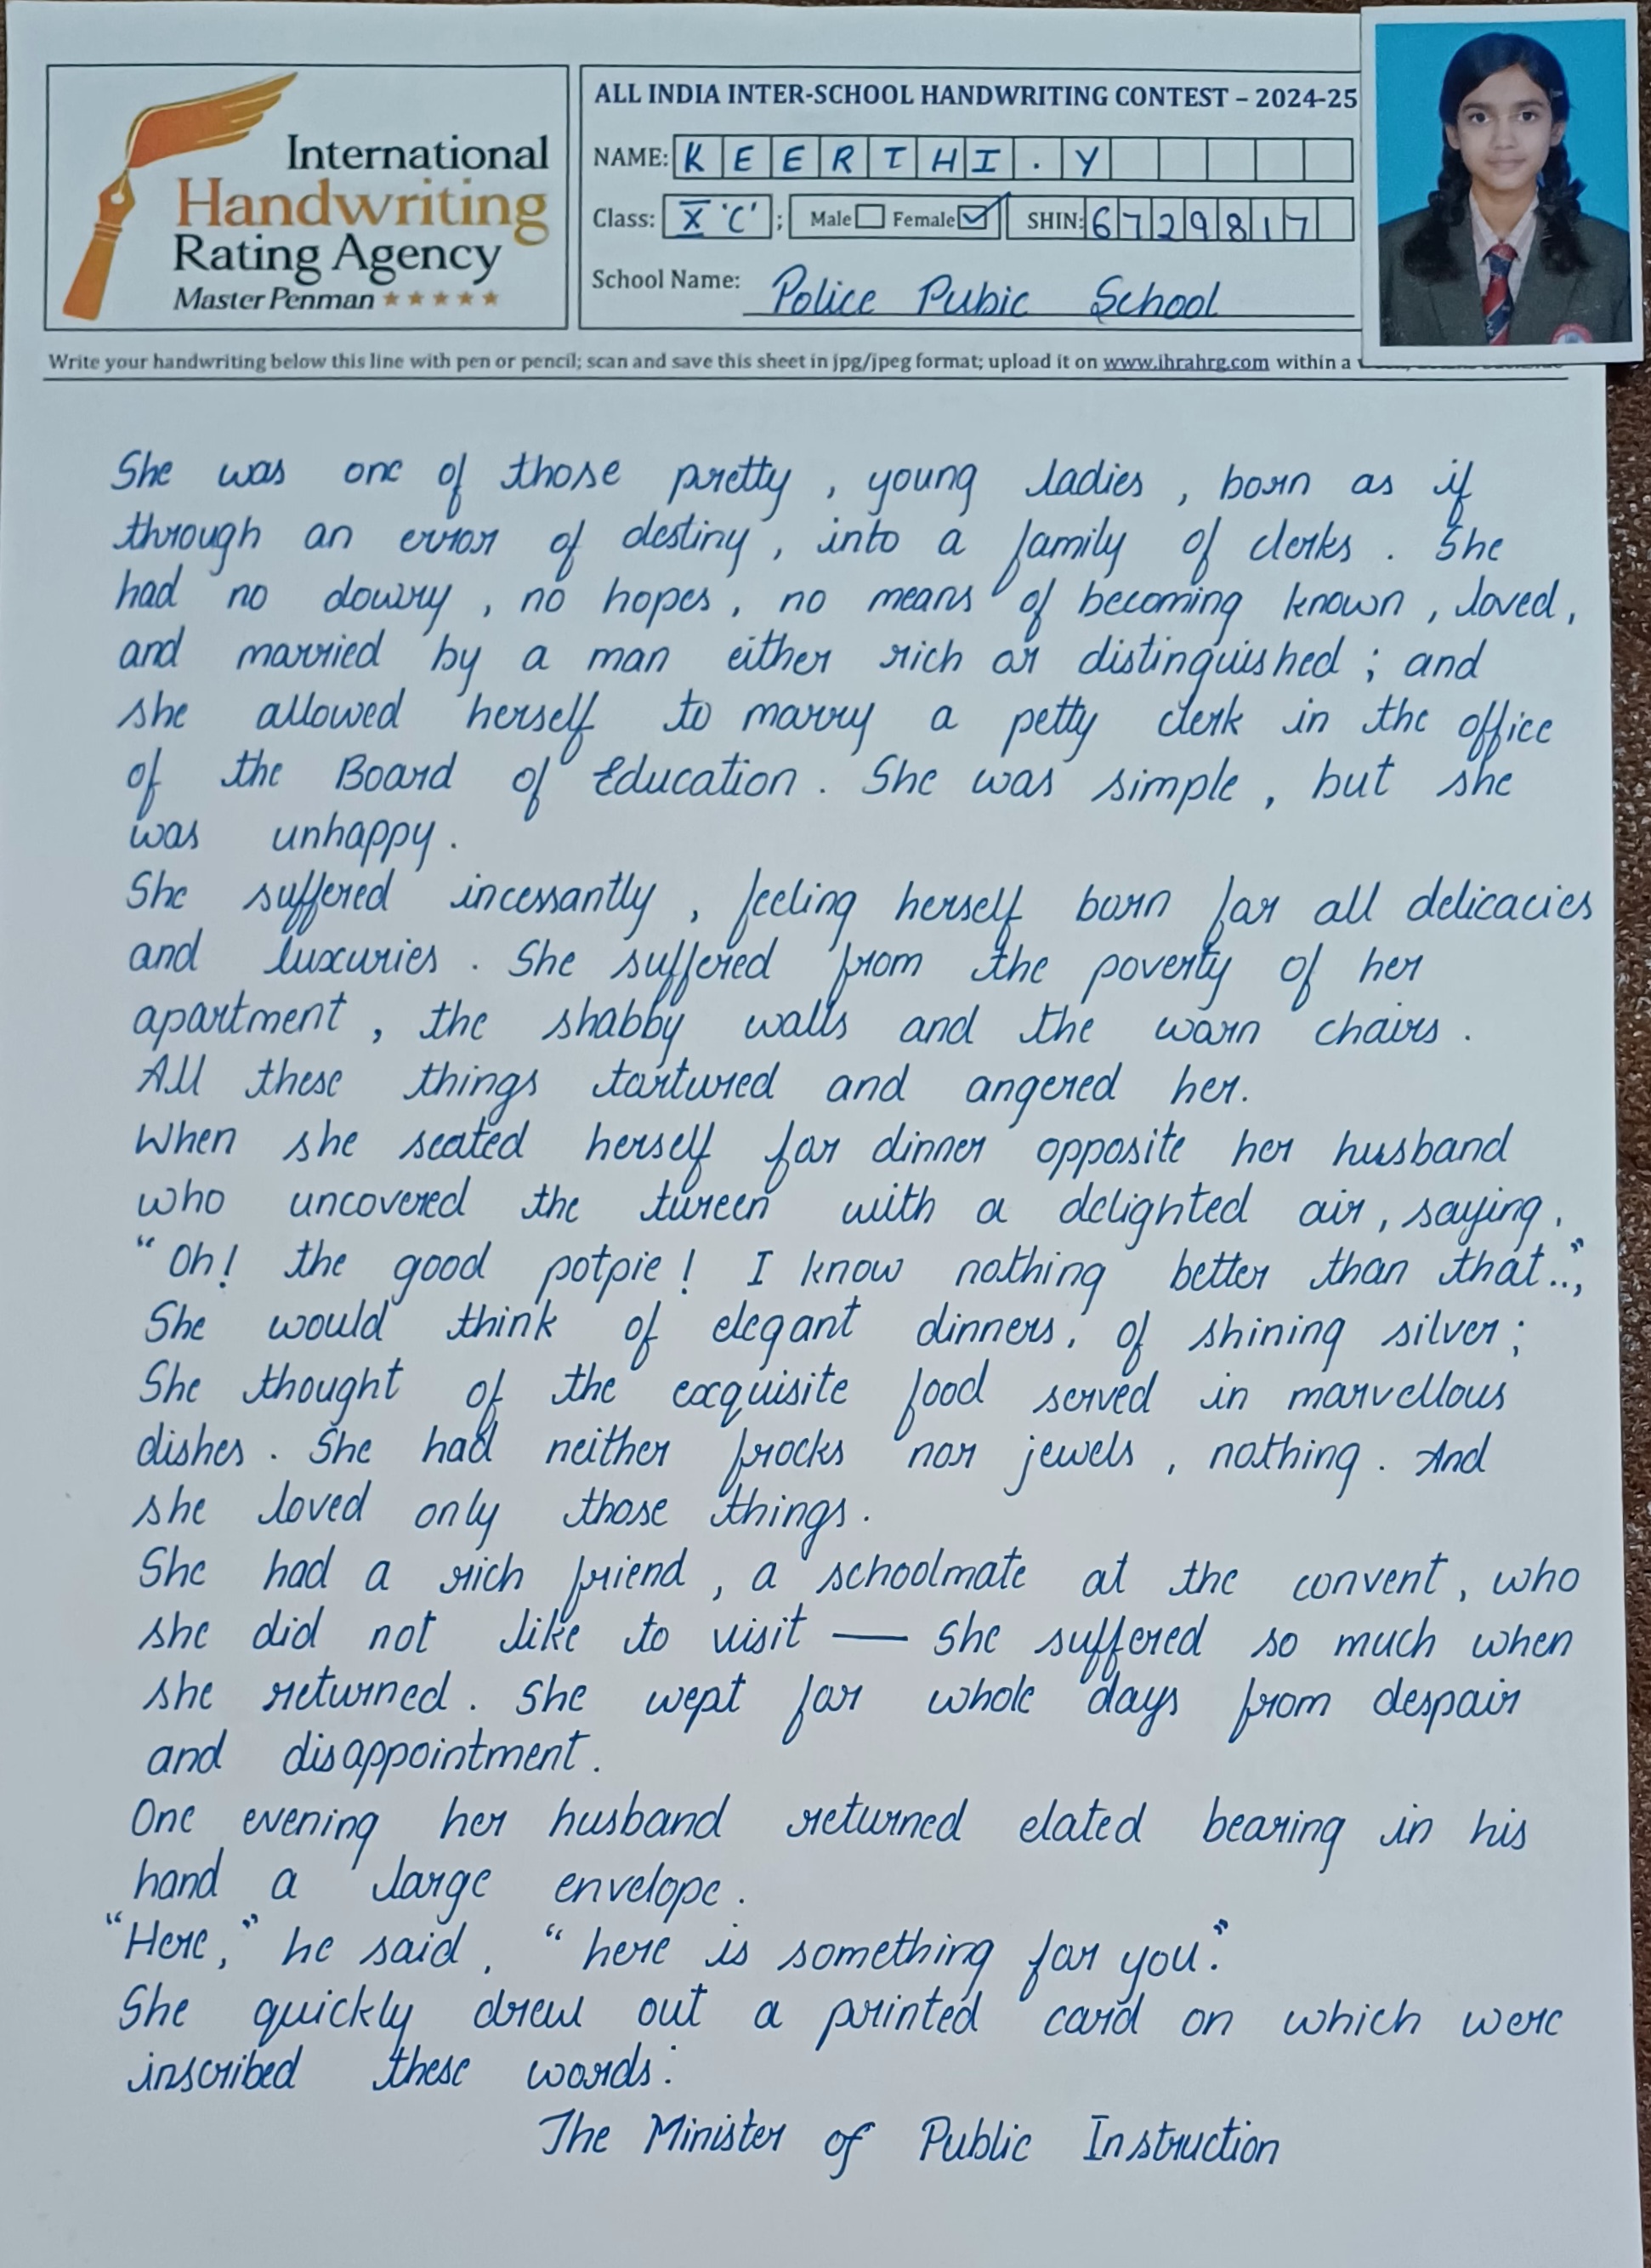 International
Handwriting
Rating Agency
Master Penman
ALL INDIA INTER-SCHOOL HANDWRITING CONTEST – 2024-25
NAME: KEERTHI.Y
Class: X 'C' ; Male Female SHIN: 6729817
School Name: Police Pubic School
Write your handwriting below this line with pen or pencil; scan and save this sheet in jpg/jpeg format; upload it on www.ihrahrg.com within a
She was one of those pretty, young ladies, born as if
through an error of destiny, into a family of clerks. She
had no dowry, no hopes, no means of becoming known, loved,
and married by a man either rich or distinguished; and
she allowed herself to marry a petty clerk in the office
of the Board of Education. She was simple, but she
was unhappy.
She suffered incessantly, feeling herself born for all delicacies
and luxuries. She suffered from the poverty of her
apartment, the shabby walls and the worn chairs.
All these things tortured and angered her.
When she seated herself for dinner opposite her husband
who uncovered the tureen with a delighted air, saying,
“Oh! the good potpie! I know nothing better than that..”,
She would think of elegant dinners, of shining silver;
She thought of the exquisite food served in marvellous
dishes. She had neither frocks nor jewels, nothing. And
she loved only those things.
She had a rich friend, a schoolmate at the convent, who
she did not like to visit — she suffered so much when
she returned. She wept for whole days from despair
and disappointment.
One evening her husband returned elated bearing in his
hand a large envelope.
“Here,” he said, “here is something for you.”
She quickly drew out a printed card on which were
inscribed these words:
The Minister of Public Instruction